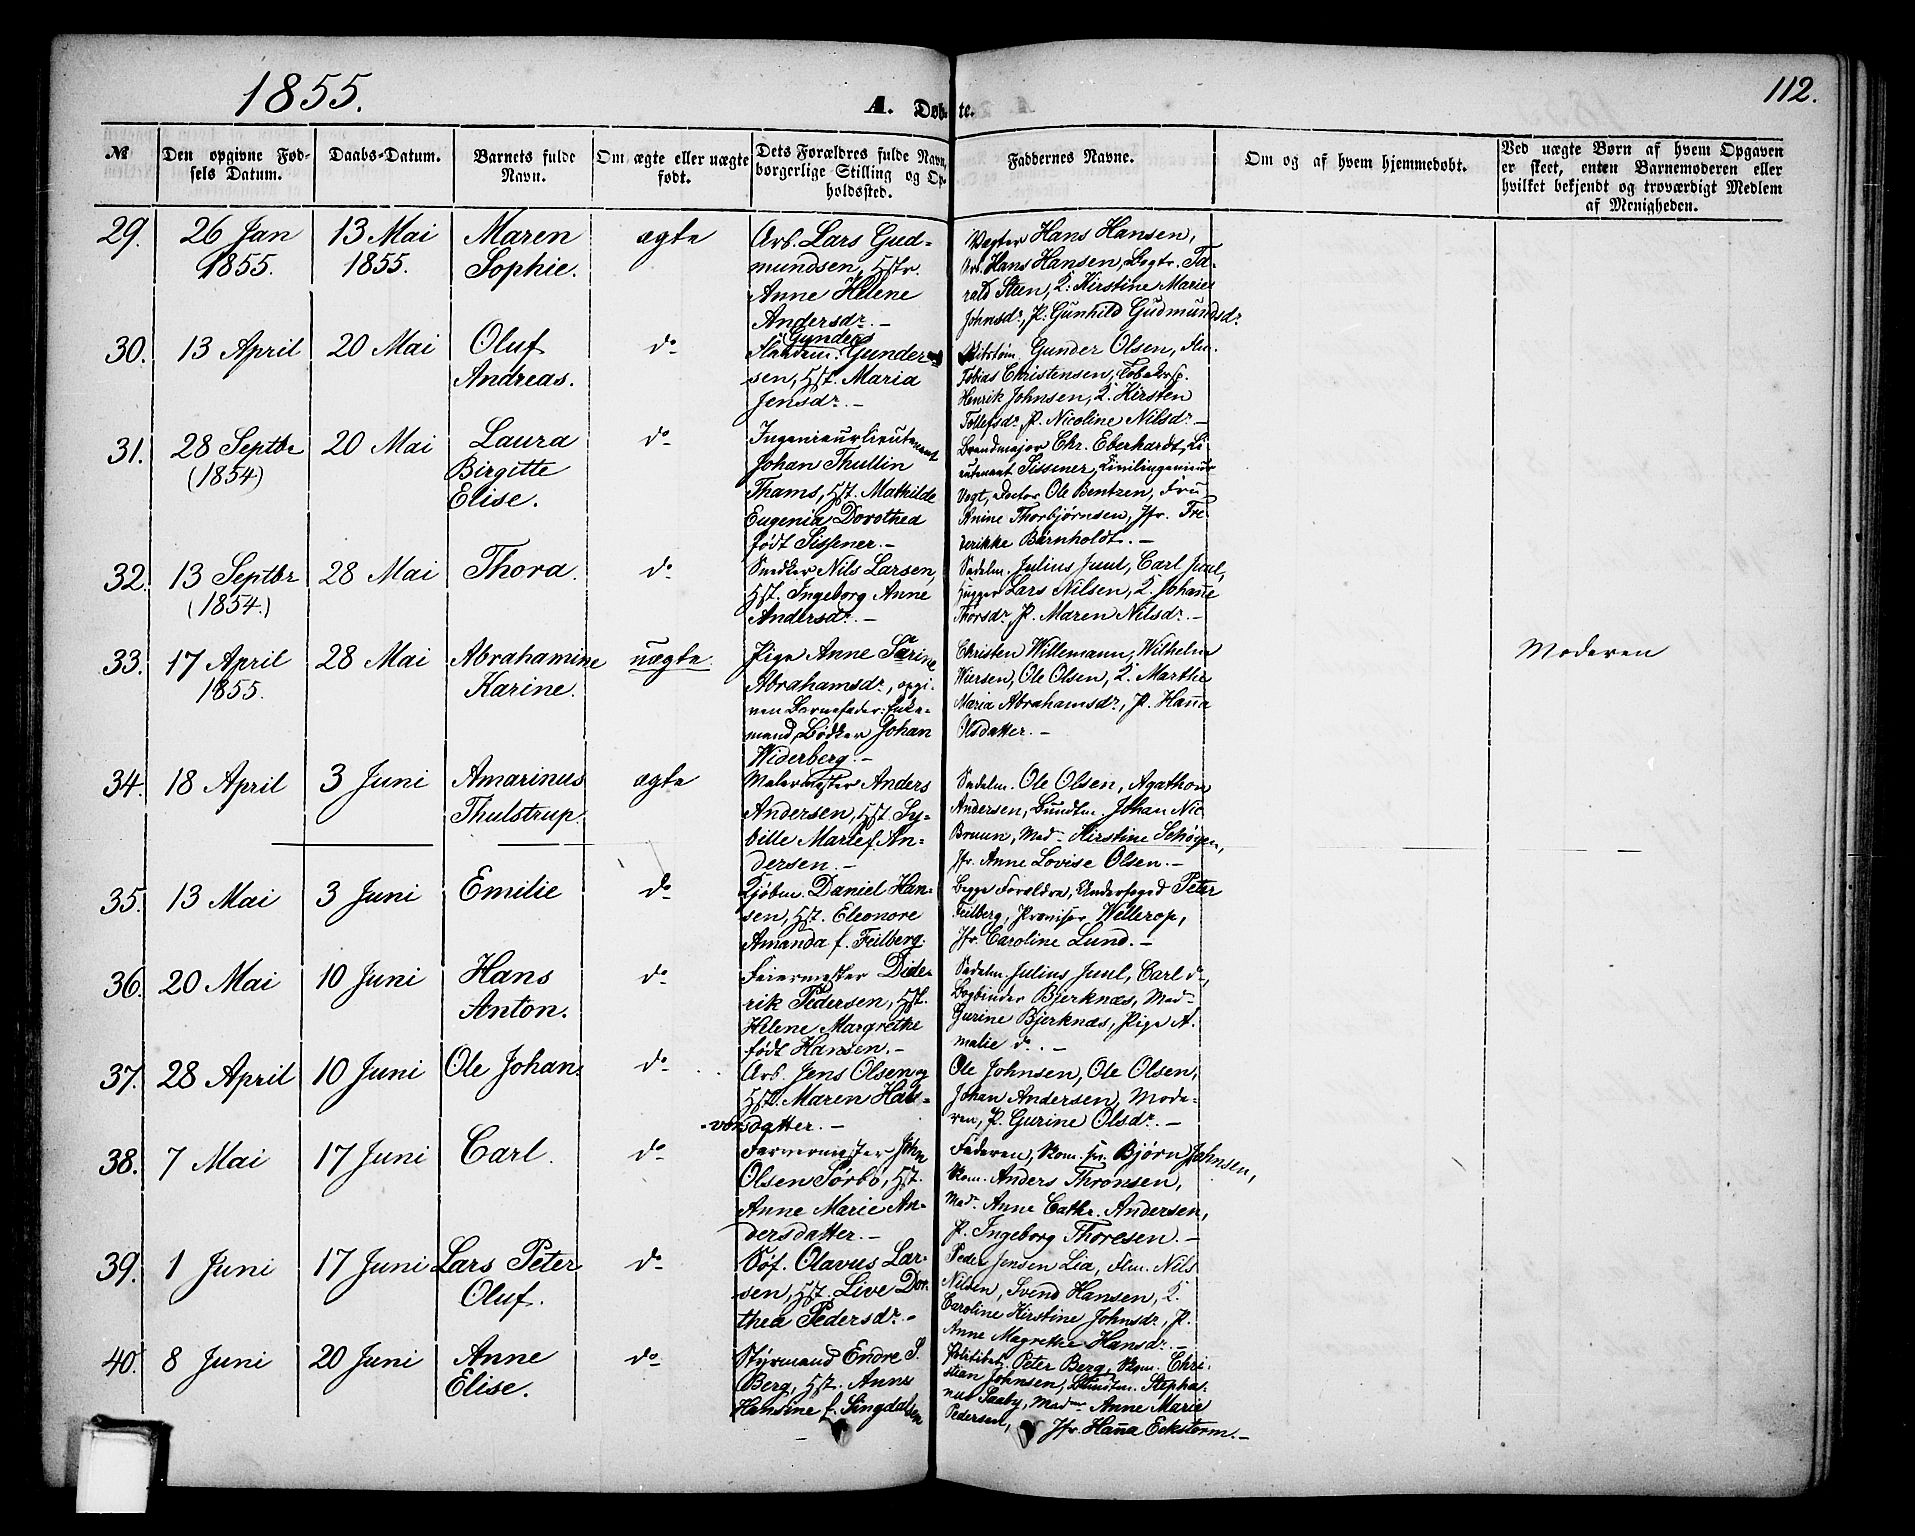 1855.
A. Døbte.
112.
№
Den opgivne Fødsels Datum.
Daabs-Datum.
Barnets fulde Navn.
Om ægte eller uægte født.
Dets Forældres fulde Navn, borgerlige Stilling og Opholdssted.
Faddernes Navne.
Om og af hvem hjemmedøbt.
Ved uægte Børn af hvem Opgaven er skeet, enten Barnemoderen eller hvilket bekjendt og troværdigt Medlem af Menigheden.
29. 26 Jan 1855. 13 Mai 1855. Maren Sophie. ægte
Arb. Lars Gud-
mundsen, Hstr.
Anne Helene
Andersdr. -
Vægter Hans Hansen,
Arb. Hans Hansen,
rald Steen, K: Kirstine Marie
Johnsdr, P: Gunhild Gudmundsdr
30. 13 April 20 Mai Oluf Andreas. do
Gunder
sen, Hst. Maria
Jensdr. -
Gunder Olsen,
Tobias Christensen,
Henrik Johnsen, K. Kirsten
Tollefsdr, P. Nicoline Nilsdr -
31. 28 Septbr (1854) 20 Mai Laura Birgitte Elise. do
Ingenieurlieutenant
Johan Thullin
Thams, Hst. Mathilde
Eugenia Dorothea
født Sissener. -
Brandmajor Chr. Eberhardt, Li-
eutenant Sissener, Civilingenieur
Vogt, Doctor Ole Bentzen, Fru
Anine Thorbjørnsen, Jfr. Fre-
derikke Barnholdt. -
32. 13 Septbr (1854.) 28 Mai Thora. do
Snedker Nils Larsen,
Hst. Ingeborg Anne
Andersdr. -
Sadelm. Julius Juul, Carl Juul,
Hugger Lars Nilsen, K. Johanne
Thorsdr, P. Maren Nilsdr. -
33. 17 April 1855. 28 Mai Abrahamine Karine. uægte.
Pige Anne Sarine
Abrahamsdr, opgi-
ven Barnefader: Enke-
mand, Bødker Johan
Widerberg. -
Christen Willemann, Wilhelm
Wiersen, Ole Olsen, K. Marthe
Maria Abrahamsdr, P. Hanna
Olsdatter. -
Moderen
34. 18 April 3 Juni Amarinus Thulstrup. ægte
Malermester Anders
Andersen, Hst. Sy-
bille Marie f. An-
dersen. -
Sadelm. Ole Olsen, Agathon
Andersen, Buntm. Johan Nic
Bruun, Mad. Kirstine Schøgen,
Jfr. Anne Lovise Olsen. -
35. 13 Mai 3 Juni Emilie do
Kjøbm. Daniel Han-
sen, Hst. Eleonore
Amanda f. Feilberg.
Begge Forældre, Underfoged Peter
Feilberg, Proviser Wellerop,
Jfr. Caroline Lund. -
36. 20 Mai 10 Juni Hans Anton. do
Feiermester Dide-
rik Pedersen, Hst.
Helene Margrethe
født Hansen. -
Sadelm. Julius Juul, Carl do,
Bogbinder Bjerknæs, Mad.
Gurine Bjerknæs, Pige A-
malie do. -
37. 28 April 10 Juni Ole Johan. do
Arb. Jens Olsen og
Hst. Maren Hal-
vorsdatter. -
Ole Johnsen, Ole Olsen,
Johan Andersen, Mode-
ren, P. Gurine Olsdr. -
38. 7 Mai 17 Juni Carl. do
Farvermester John
Olsen Sørbö, Hst.
Anne Marie An-
dersdatter. -
Faderen, Skom. Bjørn Johnsen,
Skom. Anders Thronsen,
Mad. Anne Cathr. Andersen,
P. Ingeborg Thoresen. -
39. 1 Juni 17 Juni Lars Peter Oluf. do
Søf. Olavus Lar-
sen, Hst. Live Dor-
thea Pedersdr. -
Peder Jensen Lia, Nils
Nilsen, Svend Hansen, K.
Caroline Kirstine Johnsdr, P.
Anne Magrethe Hansdr. -
40. 8 Juni 20 Juni Anne Elise. do
Styrmand Endre S.
Berg, Hst. Anne
Hansine f. Singdalsen
Politibet. Peter Berg, Skom. Chri-
stian Johnsen, Buntm. Stepha-
nus Saaby, Mad. Anne Marie
Pedersen, Jfr. Hanna Eckstorm. -